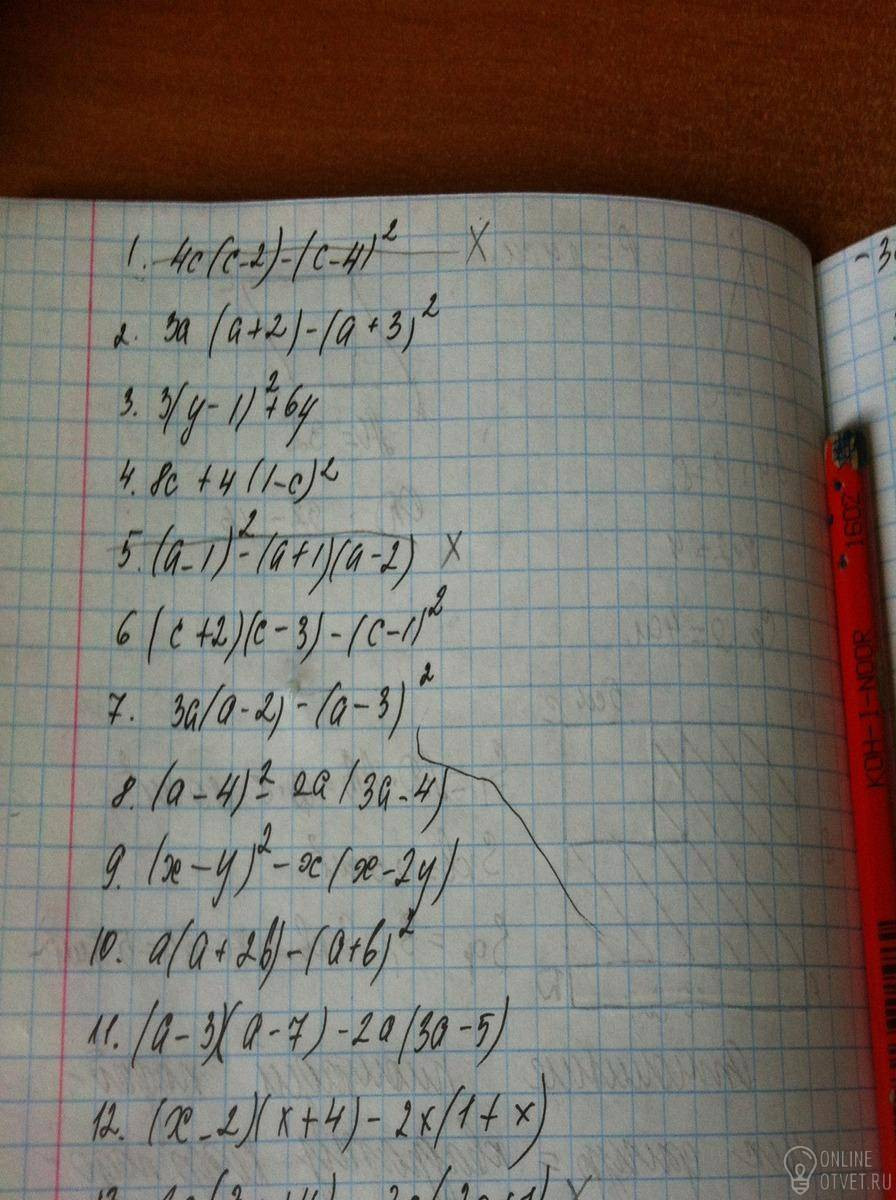 1. 4c(c-2)-(c-4)² X
2. 3a (a+2)-(a+3)²
3. 3(y-1)²+6y
4. 8c +4(1-c)²
5. (a-1)²-(a+1)(a-2) X
6 (c+2)(c-3)-(c-1)²
7. 3a(a-2)-(a-3)²
8. (a-4)²- 2a(3a-4)
9. (x-y)²-x(x-2y)
10. a(a+2b)-(a+b)²
11. (a-3)(a-7)-2a(3a-5)
12. (x-2)(x+4)-2x(1+x)
KOH-I-NOOR
1602
ONLINE
OTVET.RU